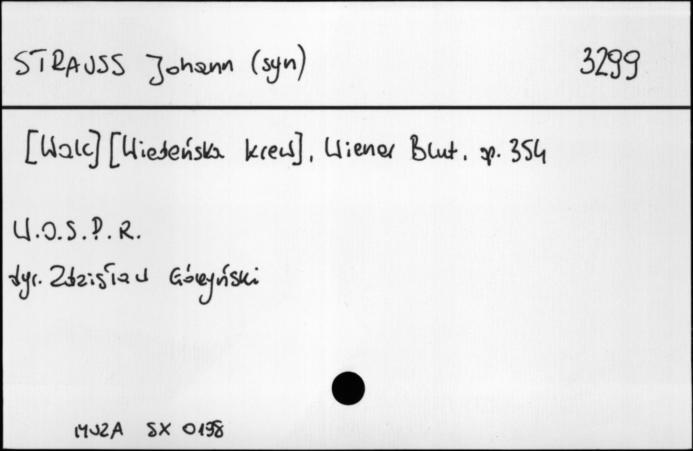 STRAUSS Johann (syn) 3299
[Walc] [Wiedeńska krew], Wiener Blut, op. 354
W.O.S.P.R.
dyr. Zdzisław Górzyński
MUZA SX 0198